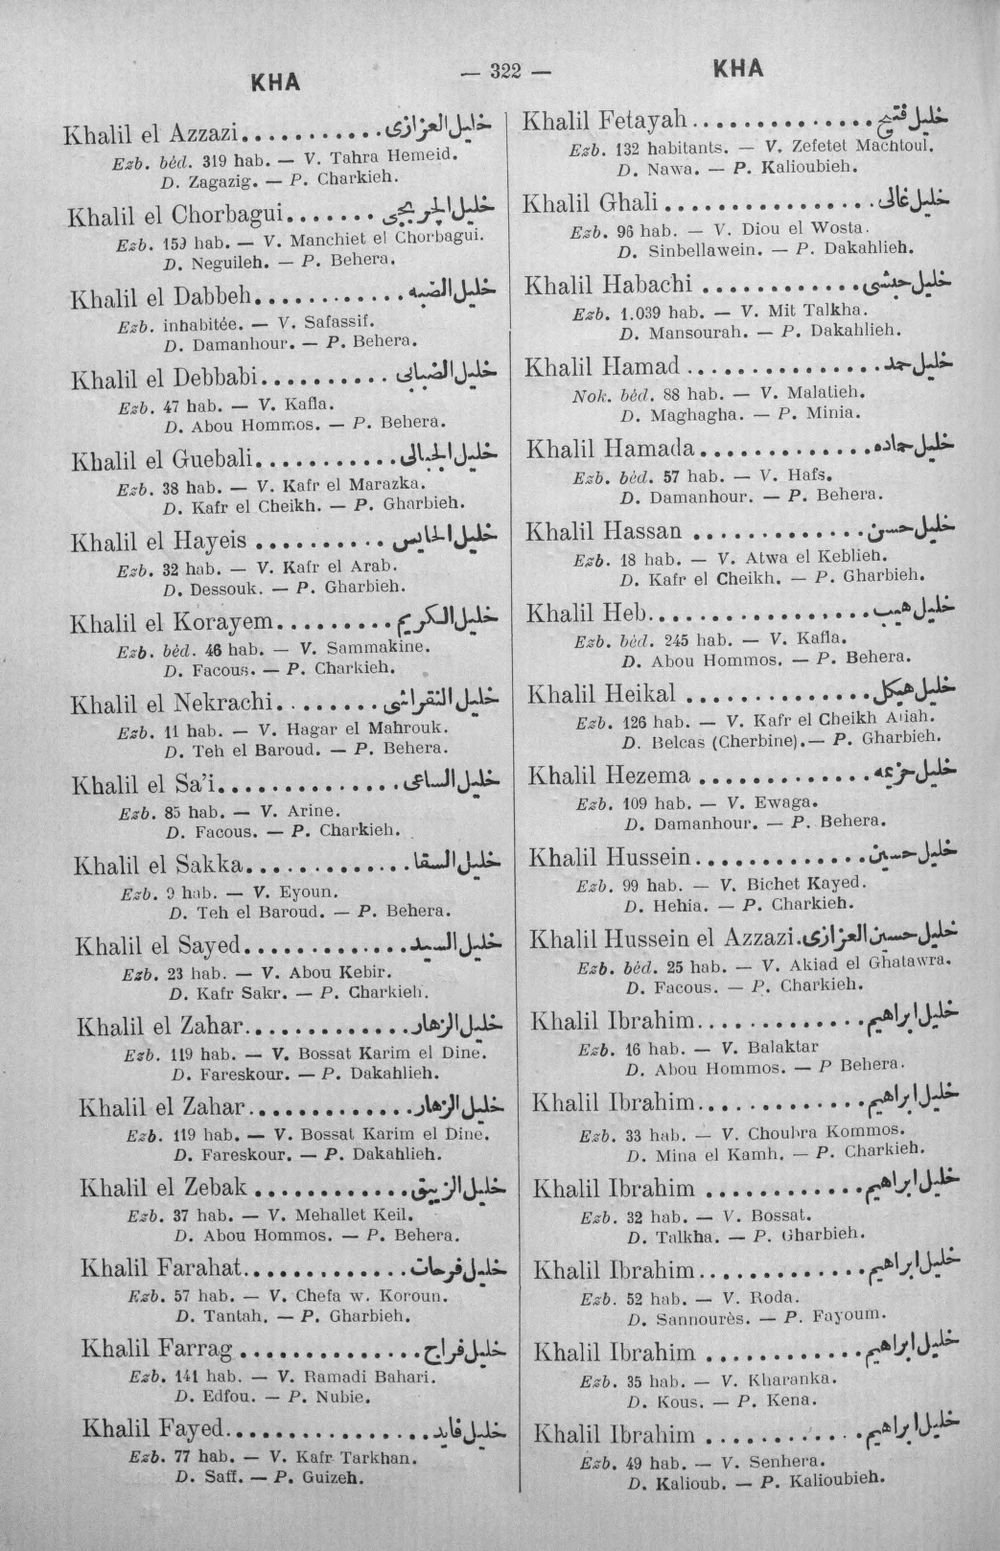 KHA
— 322 —
KHA
Khalil el Azzazi........... خليل العزازى
Ezb. béd. 319 hab. — V. Tahra Hemeid.
D. Zagazig. — P. Charkieh.
Khalil el Chorbagui....... خليل الجربجى
Ezb. 159 hab. — V. Manchiet el Chorbagui.
D. Neguileh. — P. Behera.
Khalil el Dabbeh............ خليل الضبه
Ezb. inhabitée. — V. Safassif.
D. Damanhour. — P. Behera.
Khalil el Debbabi.......... خليل الضبابى
Ezb. 47 hab. — V. Kafla.
D. Abou Hommos. — P. Behera.
Khalil el Guebali........... خليل الجبالى
Ezb. 38 hab. — V. Kafr el Marazka.
D. Kafr el Cheikh. — P. Gharbieh.
Khalil el Hayeis .......... خليل الحايس
Ezb. 32 hab. — V. Kafr el Arab.
D. Dessouk. — P. Gharbieh.
Khalil el Korayem......... خليل الكريم
Ezb. béd. 46 hab. — V. Sammakine.
D. Facous. — P. Charkieh.
Khalil el Nekrachi........ خليل النقراشى
Ezb. 11 hab. — V. Hagar el Mahrouk.
D. Teh el Baroud. — P. Behera.
Khalil el Sa'i.............. خليل الساعى
Ezb. 85 hab. — V. Arine.
D. Facous. — P. Charkieh.
Khalil el Sakka............. خليل السقا
Ezb. 9 hab. — V. Eyoun.
D. Teh el Baroud. — P. Behera.
Khalil el Sayed............. خليل السيد
Ezb. 23 hab. — V. Abou Kebir.
D. Kafr Sakr. — P. Charkieh.
Khalil el Zahar............. خليل الزهار
Ezb. 119 hab. — V. Bossat Karim el Dine.
D. Fareskour. — P. Dakahlieh.
Khalil el Zahar............. خليل الزهار
Ezb. 119 hab. — V. Bossat Karim el Dine.
D. Fareskour. — P. Dakahlieh.
Khalil el Zebak ............ خليل الزيبق
Ezb. 37 hab. — V. Mehallet Keil.
D. Abou Hommos. — P. Behera.
Khalil Farahat............. خليل فرحات
Ezb. 57 hab. — V. Chefa w. Koroun.
D. Tantah. — P. Gharbieh.
Khalil Farrag .............. خليل فراج
Ezb. 141 hab. — V. Ramadi Bahari.
D. Edfou. — P. Nubie.
Khalil Fayed................ خليل فايد
Ezb. 77 hab. — V. Kafr Tarkhan.
D. Saff. — P. Guizeh.
Khalil Fetayah.............. خليل فتيح
Ezb. 132 habitants. — V. Zefetet Machtoul.
D. Nawa. — P. Kalioubieh.
Khalil Ghali ................ خليل غالى
Ezb. 96 hab. — V. Diou el Wosta.
D. Sinbellawein. — P. Dakahlieh.
Khalil Habachi ............ خليل حبشى
Ezb. 1.039 hab. — V. Mit Talkha.
D. Mansourah. — P. Dakahlieh.
Khalil Hamad ............... خليل حمد
Nok. béd. 88 hab. — V. Malatieh.
D. Maghagha. — P. Minia.
Khalil Hamada............. خليل حماده
Ezb. béd. 57 hab. — V. Hafs.
D. Damanhour. — P. Behera.
Khalil Hassan ............. خليل حسن
Ezb. 18 hab. — V. Atwa el Keblieh.
D. Kafr el Cheikh. — P. Gharbieh.
Khalil Heb.................. خليل هيب
Ezb. béd. 245 hab. — V. Kafla.
D. Abou Hommos. — P. Behera.
Khalil Heikal .............. خليل هيكل
Ezb. 126 hab. — V. Kafr el Cheikh Atiah.
D. Belcas (Cherbine). — P. Gharbieh.
Khalil Hezema ............. خليل حزيمه
Ezb. 109 hab. — V. Ewaga.
D. Damanhour. — P. Behera.
Khalil Hussein............. خليل حسين
Ezb. 99 hab. — V. Bichet Kayed.
D. Hehia. — P. Charkieh.
Khalil Hussein el Azzazi. خليل حسين العزازى
Ezb. béd. 25 hab. — V. Akiad el Ghatawra.
D. Facous. — P. Charkieh.
Khalil Ibrahim............. خليل ابراهيم
Ezb. 16 hab. — V. Balaktar
D. Abou Hommos. — P Behera.
Khalil Ibrahim............. خليل ابراهيم
Ezb. 33 hab. — V. Choubra Kommos.
D. Mina el Kamh. — P. Charkieh.
Khalil Ibrahim ............ خليل ابراهيم
Ezb. 32 hab. — V. Bossat.
D. Talkha. — P. Gharbieh.
Khalil Ibrahim............. خليل ابراهيم
Ezb. 52 hab. — V. Roda.
D. Sannourès. — P. Fayoum.
Khalil Ibrahim ............ خليل ابراهيم
Ezb. 35 hab. — V. Kharanka.
D. Kous. — P. Kena.
Khalil Ibrahim ............ خليل ابراهيم
Ezb. 49 hab. — V. Senhera.
D. Kalioub. — P. Kalioubieh.